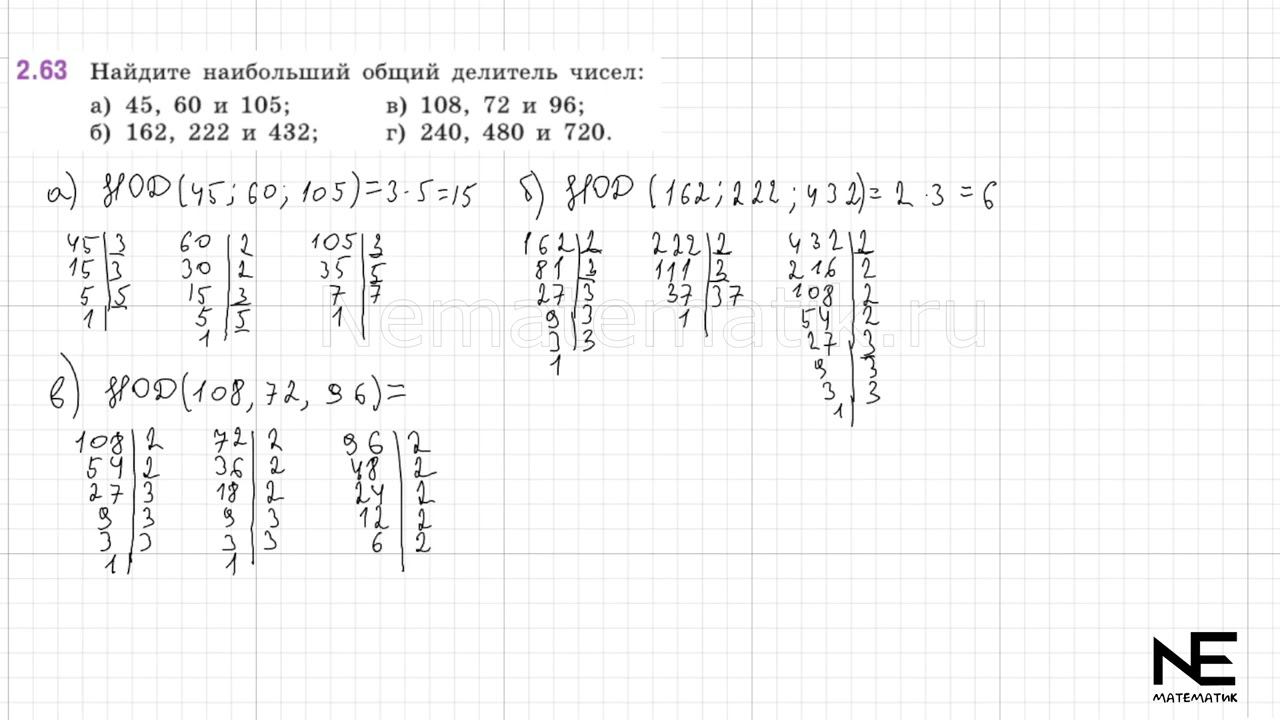 2.63 Найдите наибольший общий делитель чисел:
а) 45, 60 и 105; в) 108, 72 и 96;
б) 162, 222 и 432; г) 240, 480 и 720.
а) НОД (45; 60; 105) = 3 · 5 = 15
45 | 3
15 | 3
5 | 5
1 |
60 | 2
30 | 2
15 | 3
5 | 5
1
105 | 3
35 | 5
7 | 7
1 |
б) НОД (162; 222; 432) = 2 · 3 = 6
162 | 2
81 | 3
27 | 3
9 | 3
3 | 3
1
222 | 2
111 | 3
37 | 37
1 |
432 | 2
216 | 2
108 | 2
54 | 2
27 | 3
9 | 3
3 | 3
1 |
в) НОД (108, 72, 96) =
108 | 2
54 | 2
27 | 3
9 | 3
3 | 3
1 |
72 | 2
36 | 2
18 | 2
9 | 3
3 | 3
1
96 | 2
48 | 2
24 | 2
12 | 2
6 | 2
Nematematik.ru
NE
МАТЕМАТИК